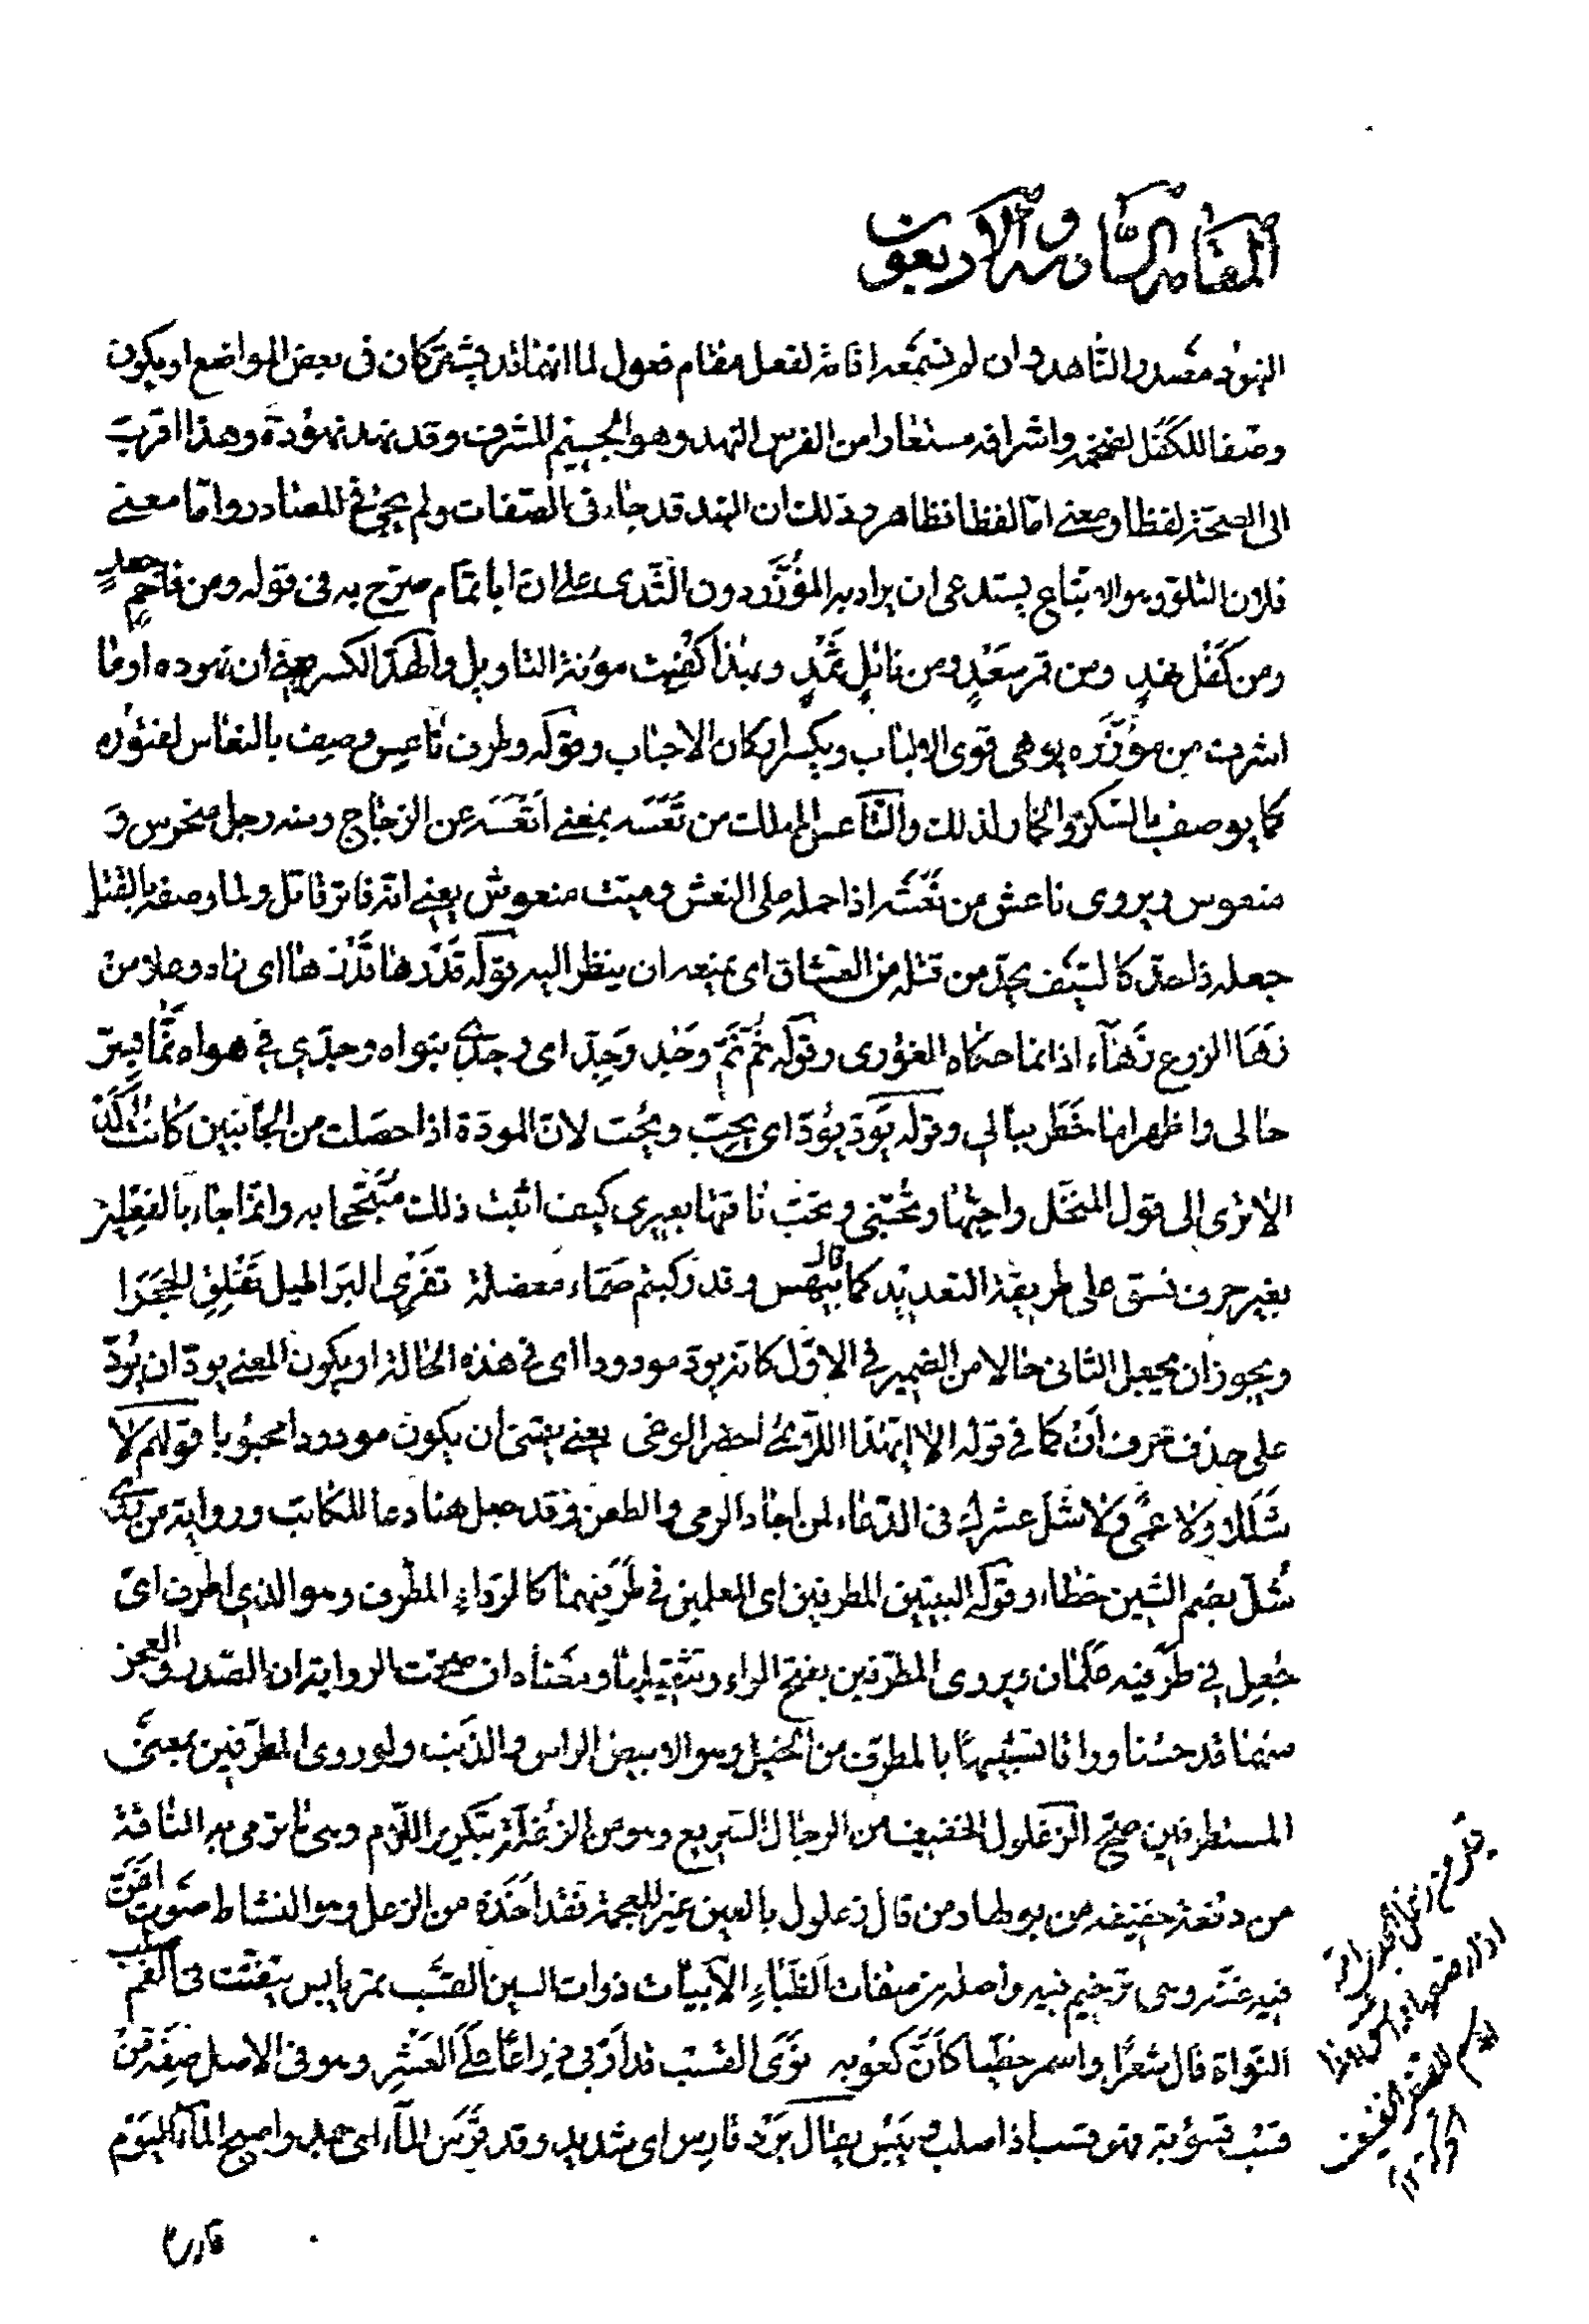 المقامة السادسة والاربعون
النهود مصدر الناهد وان لم نسمعه اقامة لفعل مقام فعول لما انهما قد يشتركان في بعض المواضع او يكون
وصفا للكفل لضخمه واشرافه مستعارا من الفرس النهد وهو الجسيم المشرف وقد نهد نهودة وهذا اقرب
الى الصحة لفظا ومعنى اما لفظا فظاهر وذلك ان النهد قد جاء في الصفات ولم يجئ في المصادر واما معنى
فلان التلو وهو الاتباع يستدعى ان يراد به المؤزر دون الثدى على ان ابا تمام صرح به في قوله ومن فاحم جعد
ومن كفل نهد ومن قمر سعد ومن نائل ثمد وبهذا كفيت مونة التاويل والهد الكسر يعنى ان نهوده او ما
اشرف من مؤزره يوهى قوى الالباب ويكسر اركان الاحباب وقوله وطرف ناعس وصف بالنعاس لفتوره
كما يوصف بالسكر والخمار لذلك والتاعس المهلك من تعسه بمعنى اتعسه عن الزجاج ومنه رجل منحوس و
منعوس ويروى ناعش من نعشه اذا حمله على النعش وميت منعوش يعنى انه فاتر قاتل ولما وصفه بالقتل
جعله ذا حد كالسيف يحد من قتله من العشاق اى يمنعه ان ينظر اليه قوله قدرها قد زها اى زاد وعلا من
زها الزرع زهاء اذا نما حكاه الغورى وقوله ثم نم وجد وجد اى وجدى بنواه وجدى في هواه نما بسر
حالى واظهرا ما خطر ببالى وقوله يود يود اى يحب ويحب لان المودة اذا حصلت من الجانبين كانت الذ
الا ترى الى قول المنخل واحبها وتحبنى ويحب ناقتها بعيرى كيف اثبت ذلك متبجحا به وانما جاء بالفعلين
بغير حرف نسق على طريقة التعديد كما قال بيهس وقد ركبتم صماء معضلة تفرى البراطيل تفلق الحجرا
ويجوز ان يجعل الثانى حالا من الضمير في الاول كانه يود مودودا اى في هذه الحالة او يكون المعنى يود ان يود
على حذف حرف ان كما في قوله الا ايهذا اللائمى احضر الوغى يعنى يتمنى ان يكون مودودا محبوبا قولهم لا
شللا ولا عمى ولا شل عشرك في الدعاء لمن اجاد الرمى والطعن وقد جعل هنا دعا للكاتب ورواية من روى
شل بضم الشين خطاء وقوله البيتين المطرفين اى المعلمين في طرفيهما كالرداء المطرف وهو الذى اطرف اى
جعل في طرفيه علمان ويروى المطرفين بفتح الراء وتثقيلها ومعناه ان صحت الرواية ان الصدر والعجز
منهما قد حسنا وراقا تشبيها بالمطرف من الخيل وهو الابيض الراس والذنب ولو روى المطرفين بمعنى
المستطرفين صح الزغلول الخفيف من الرجال السريع وهو من الزغلة بتكرير اللام وهى ما ترمى به الناقة
من دفعة خفيفة من بولها ومن قال زعلول بالعين غير المعجمة فقد اخذه من الزعل وهو النشاط صوت اغن
فيه غنة وهى ترخيم فيه واصله من صفات الظباء الابيات ذوات السين القسب تمر يابس يتفتت في الفم صلب
النواة قال شعرا واسمر خطيا كان كعوبه نوى القسب قد اربى ذراعا على العشر وهو في الاصل صفة من
قسب قسوبة فهو قسب اذا صلب ويبس يقال برد قارس اى شديد وقد قرس الماء اى جمد واصبح الماء اليوم
قارسا